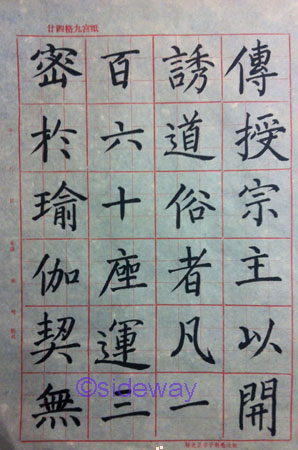 廿四格九宮紙
傳授宗主以開
誘道俗者凡一
百六十座運三
密於瑜伽契無
©sideway